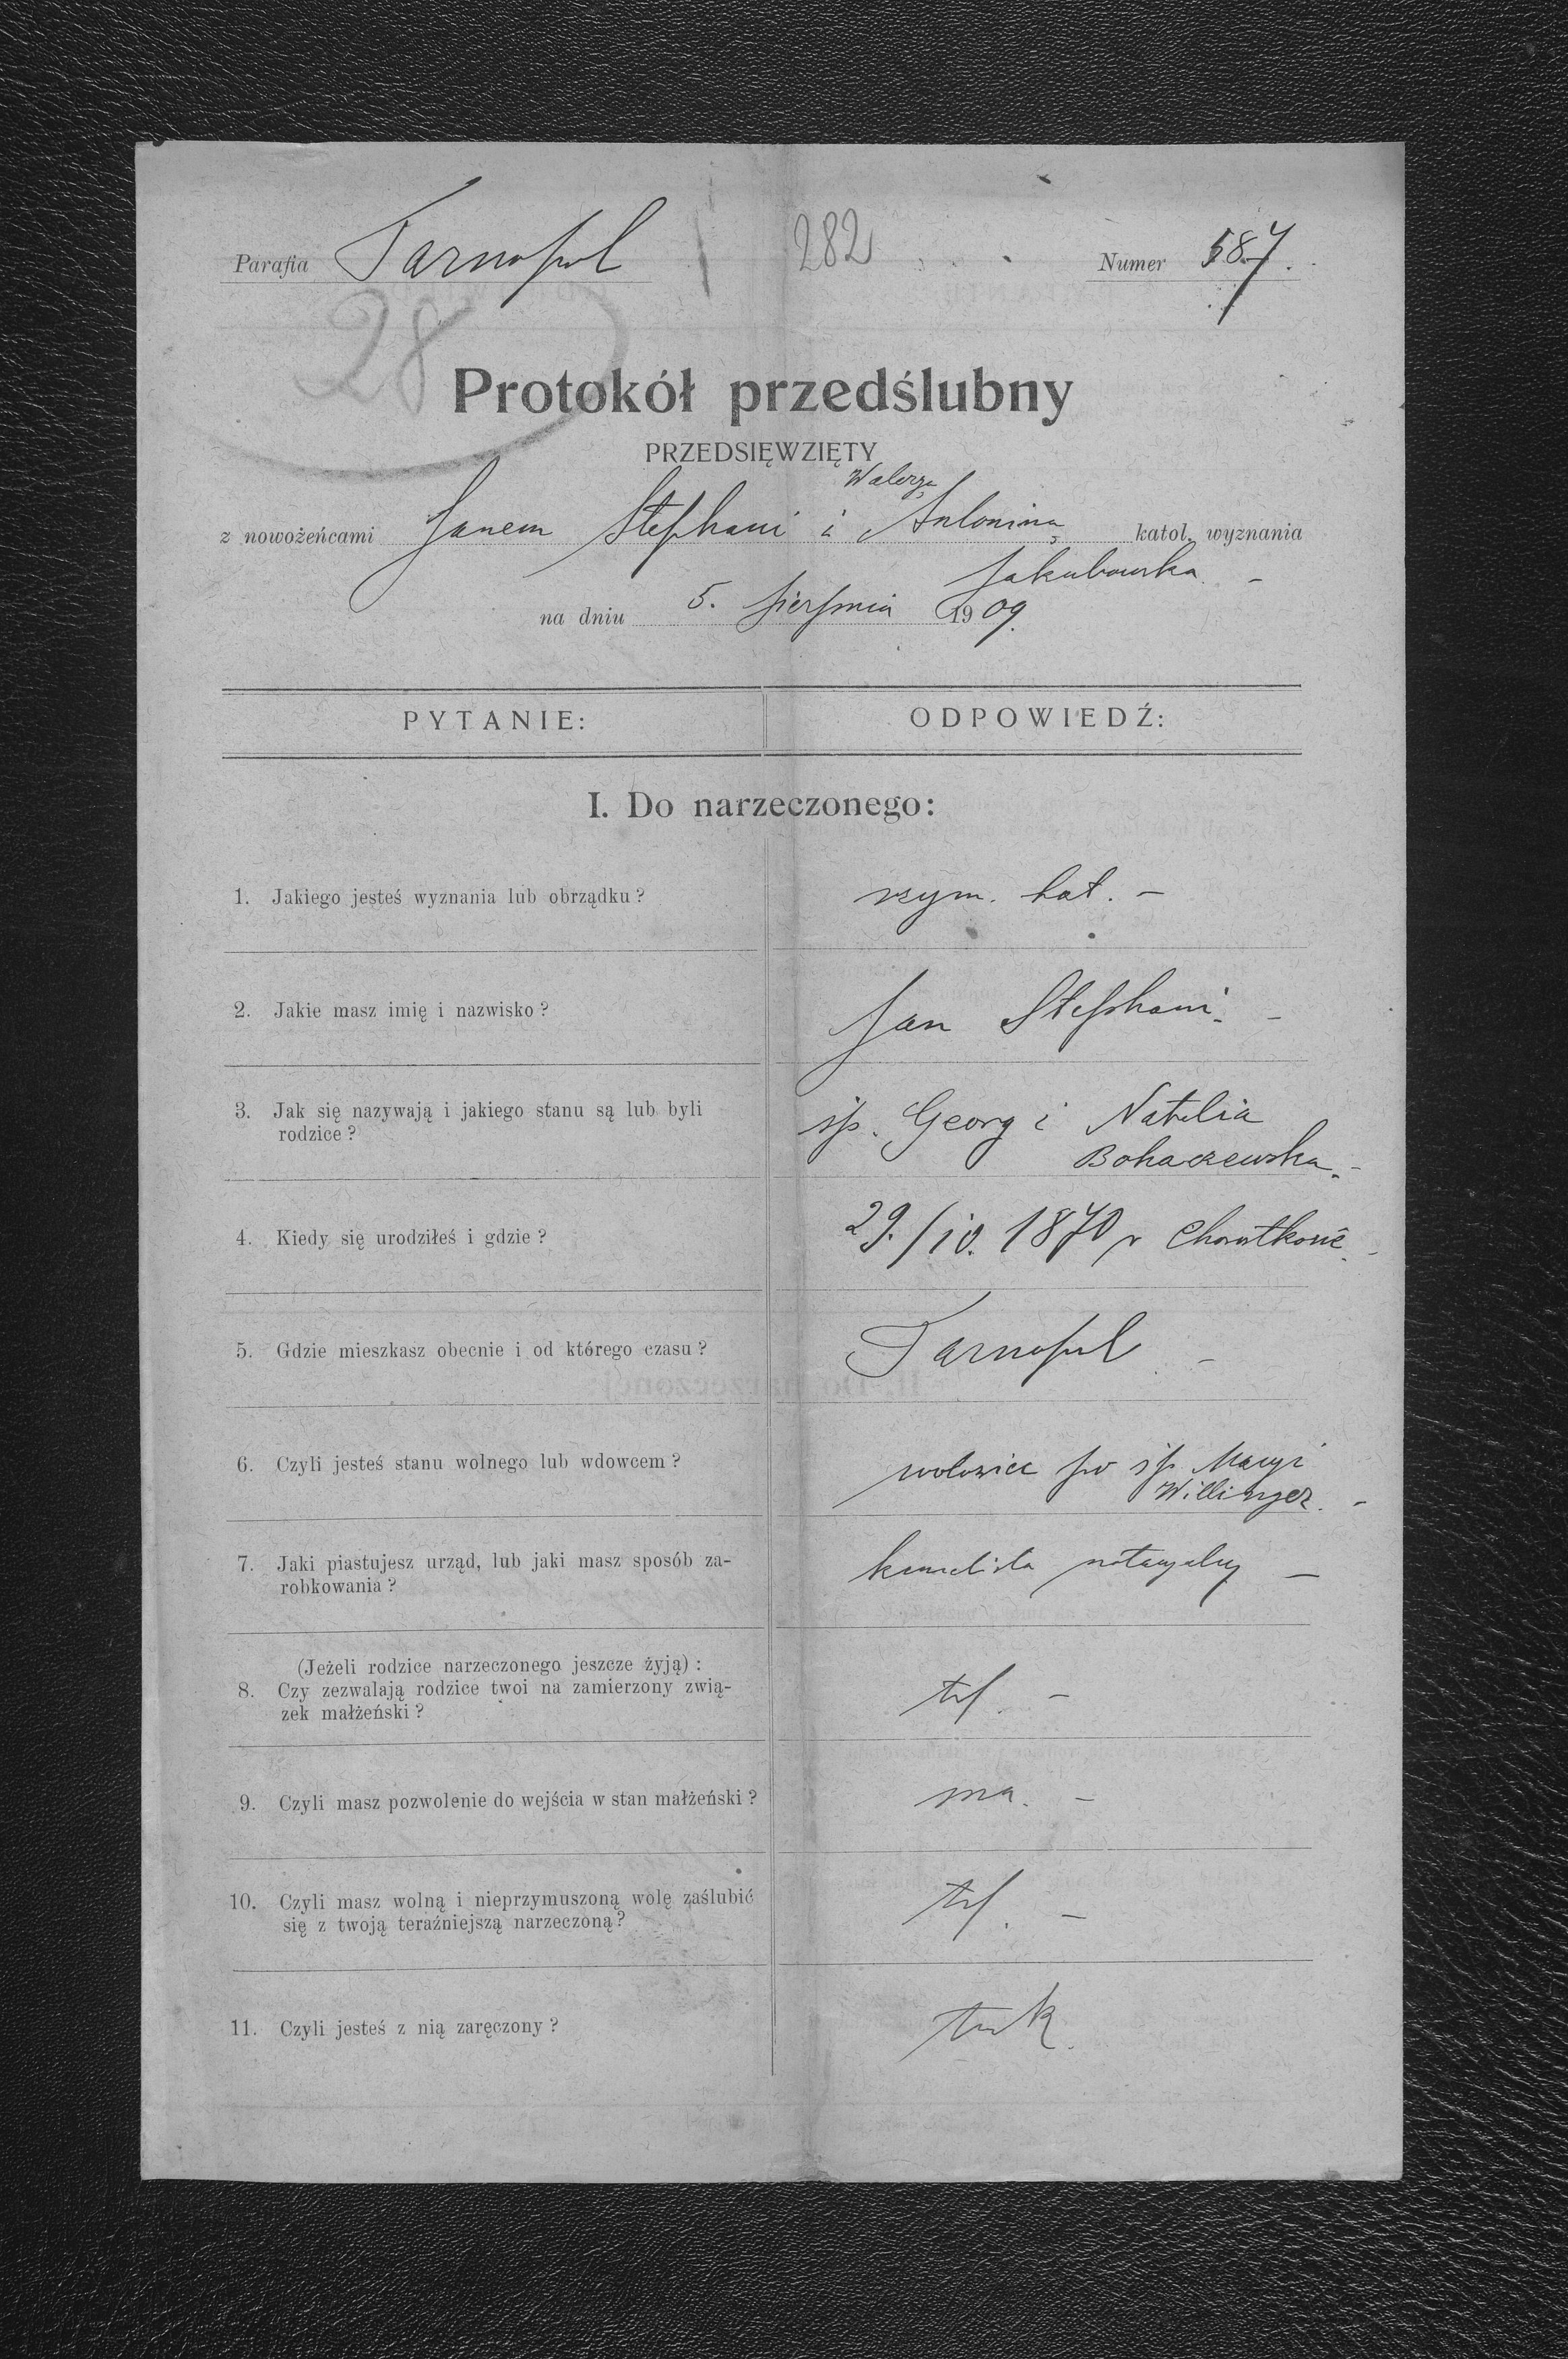 Parafia Tarnopol 282 Numer 587.
28
Protokół przedślubny
PRZEDSIĘWZIĘTY
Waleryą
z nowożeńcami Janem Stephani i Antoniną katol. wyznania
Jakubowska –
na dniu 5. sierpnia 1909.
PYTANIE: ODPOWIEDŹ:
I. Do narzeczonego:
1. Jakiego jesteś wyznania lub obrządku? rzym. kat. –
2. Jakie masz imię i nazwisko? Jan Stephani. –
3. Jak się nazywają i jakiego stanu są lub byli śp. Georg i Natalia
rodzice? Bohaczewska. –
4. Kiedy się urodziłeś i gdzie? 29./10. 1870 r
5. Gdzie mieszkasz obecnie i od którego czasu? Tarnopol –
6. Czyli jesteś stanu wolnego lub wdowcem? wdowiec po śp. Maryi
Willinger. –
7. Jaki piastujesz urząd, lub jaki masz sposób za- kandida notaryalny –
robkowania?
(Jeżeli rodzice narzeczonego jeszcze żyją):
8. Czy zezwalają rodzice twoi na zamierzony zwią-
zek małżeński?
9. Czyli masz pozwolenie do wejścia w stan małżeński? ma. –
10. Czyli masz wolną i nieprzymuszoną wolę zaślubić
się z twoją teraźniejszą narzeczoną?
11. Czyli jesteś z nią zaręczony? tak.